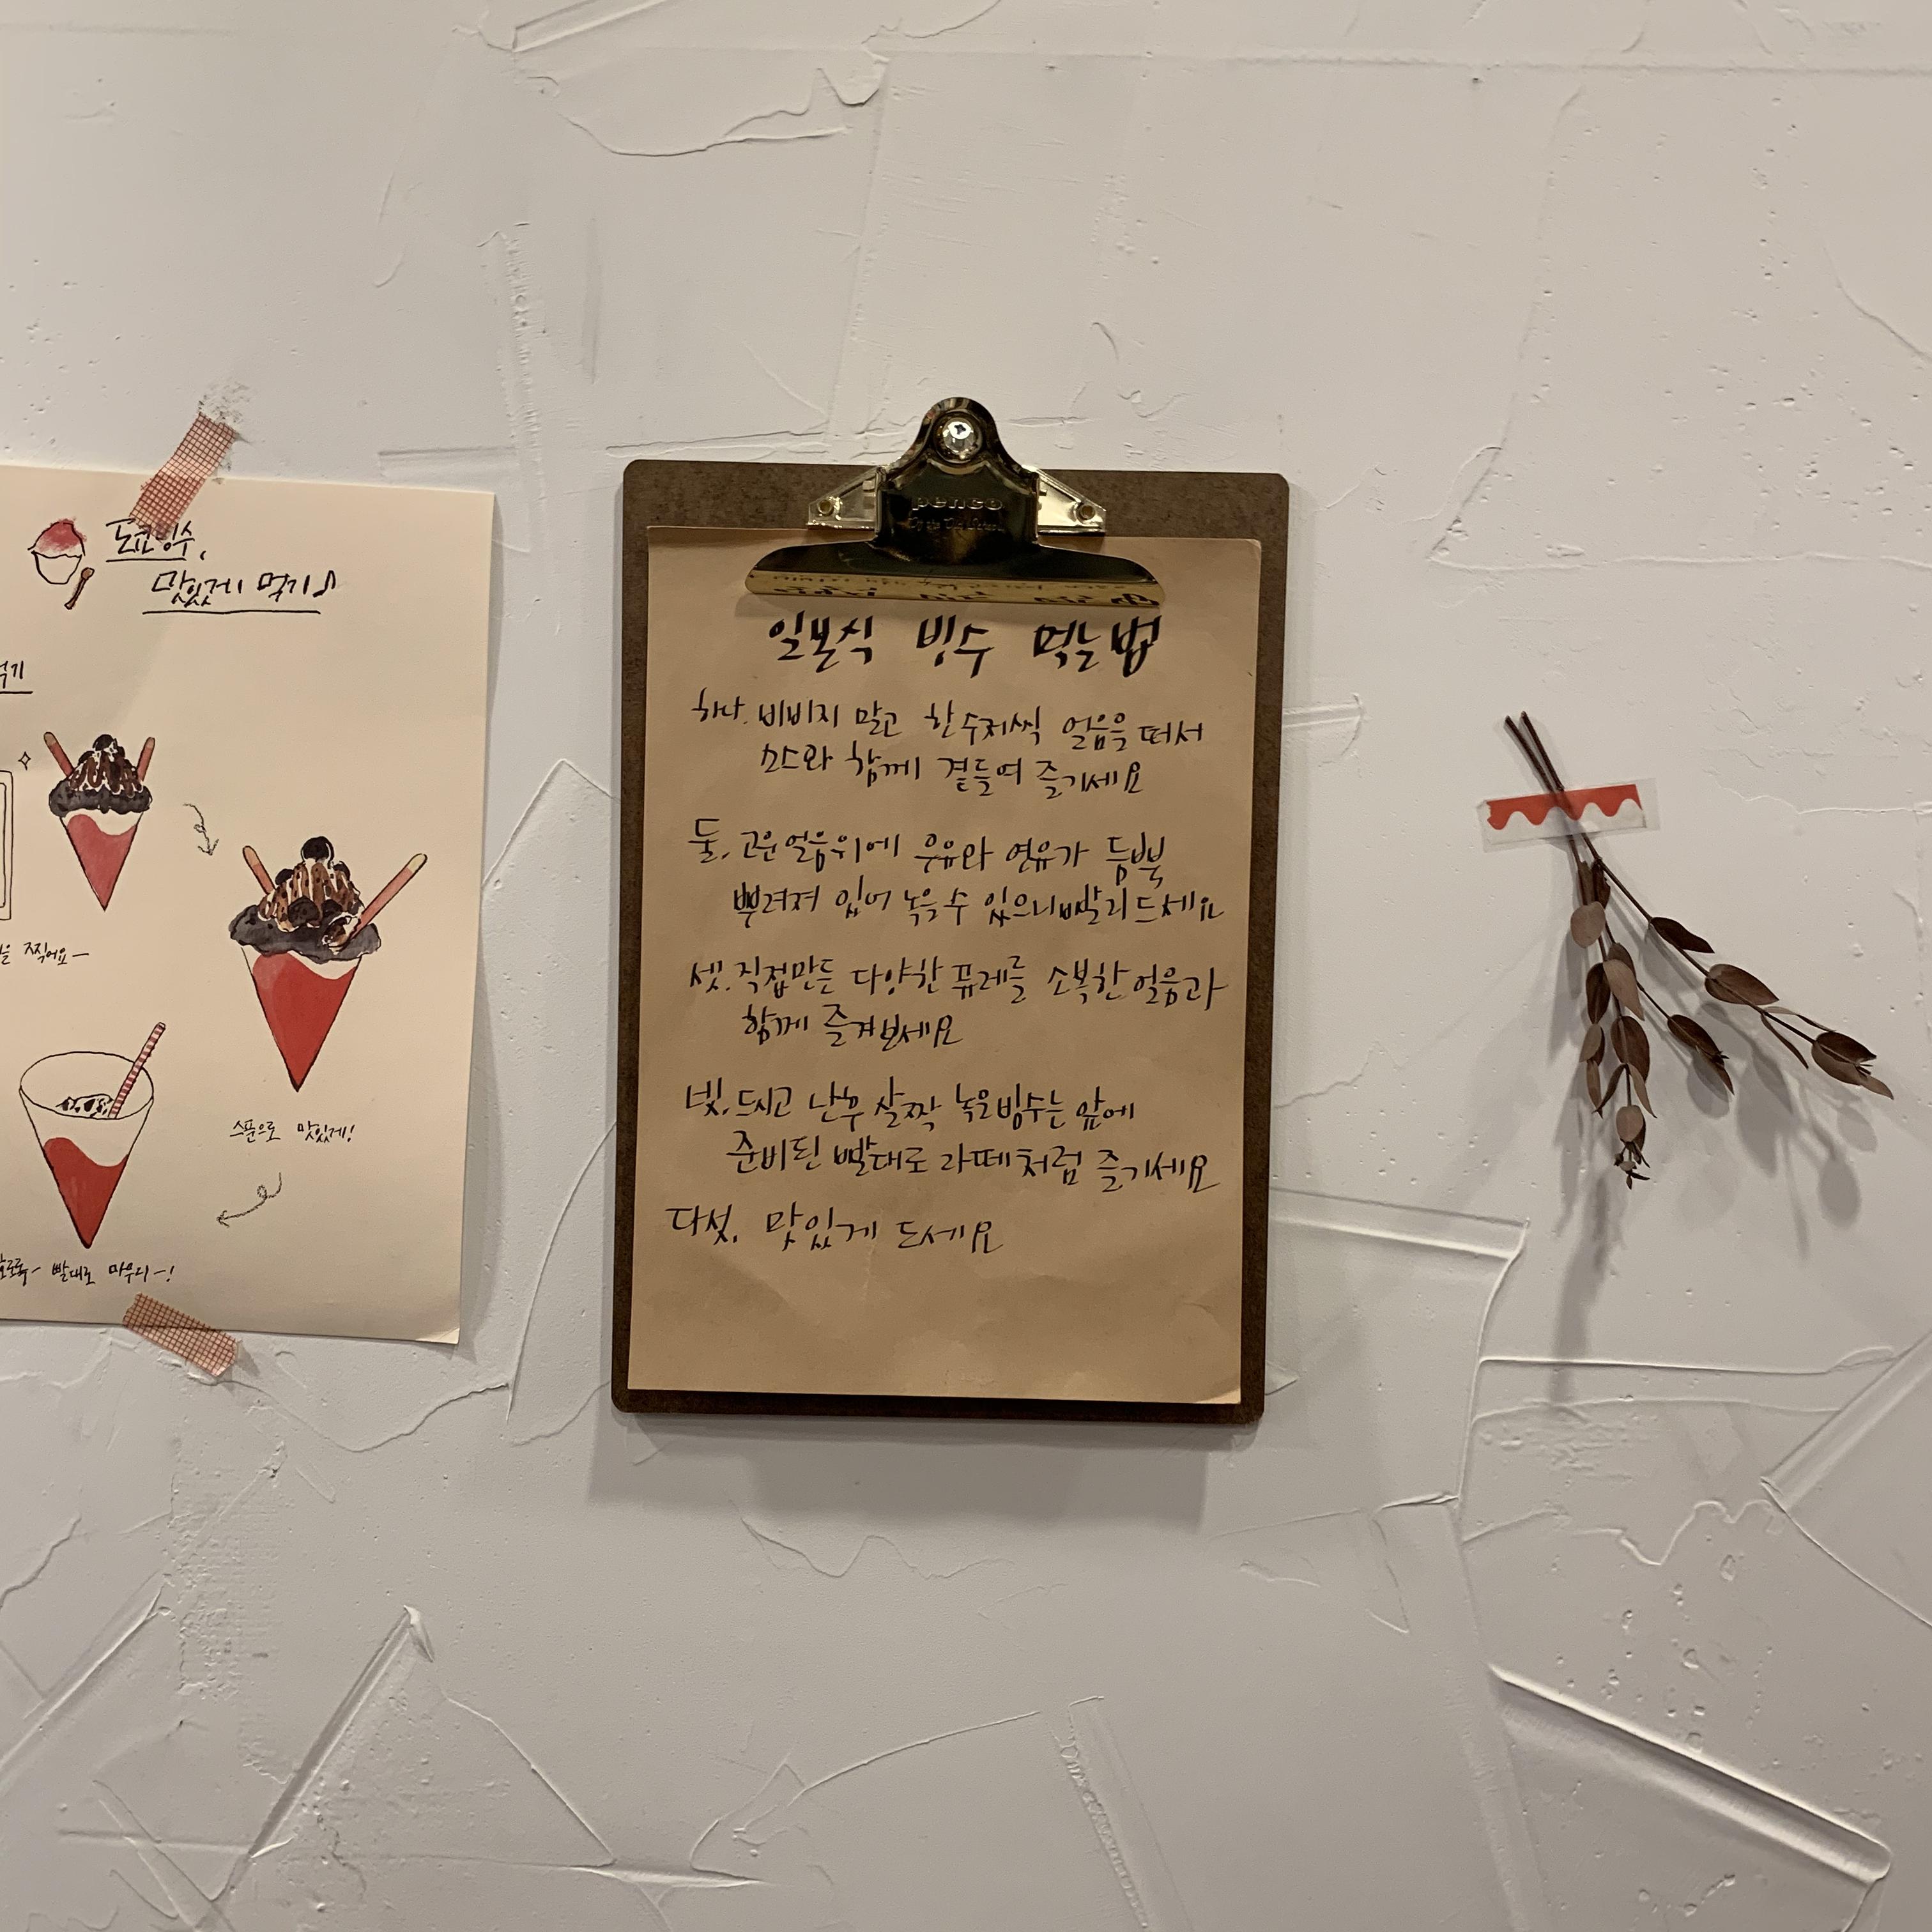 도쿄빙수,
맛있게 먹기♪
먹기
찍어요~
스푼으로 맛있게!
호로록~ 빨대로 마무리~!
penco
일본식 빙수 먹는법
하나. 비비지 말고 한수저씩 얼음을 떠서
소스와 함께 곁들여 즐기세요
둘. 고운얼음위에 우유와 연유가 듬뿍
뿌려져 있어 녹을수 있으니 빨리드세요
셋. 직접만든 다양한 퓨레를 소복한 얼음과
함께 즐겨보세요
넷. 드시고 난후 살짝 녹은빙수는 앞에
준비된 빨대로 라떼처럼 즐기세요
다섯. 맛있게 드세요